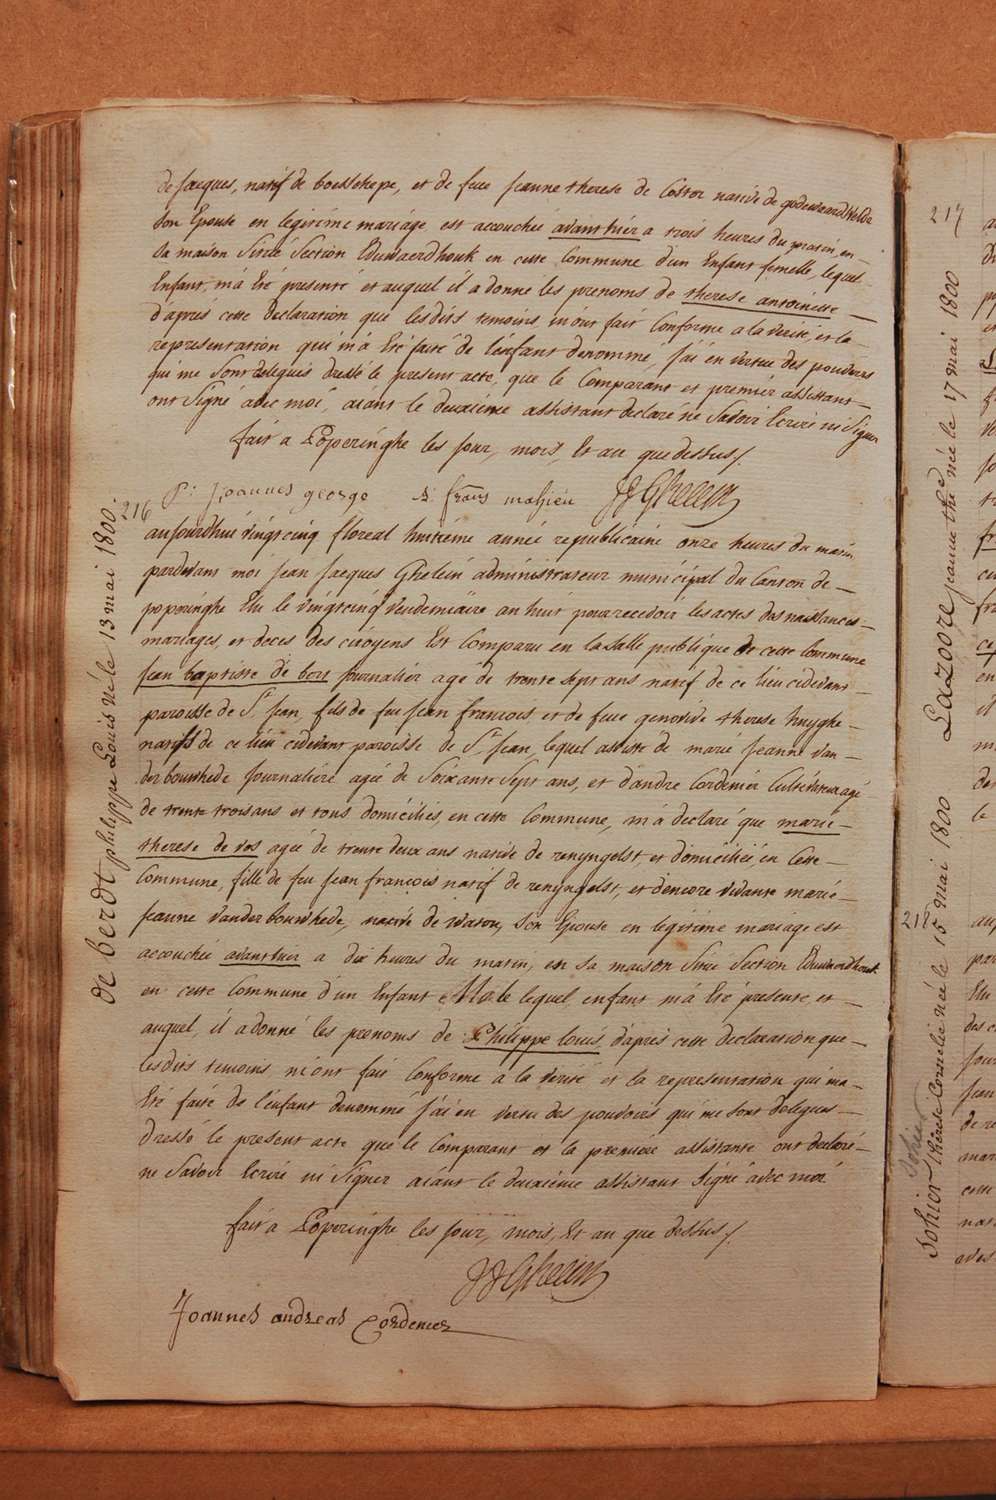 de Jacques, natif de boesschepe, et de feue Jeanne therese de Coster native de godewaersvelde
son Epouse en legitime mariage est accouchée avanthier a trois heures du matin, en
sa maison Sinée Section Eduwaerdhouk en cette Commune d'un Enfant femelle, lequel
Enfant, m'a été presenté et auquel il a donné les prenoms de therese antoinette
d'après cette declaration que lesdits temoins m'ont fait Conforme a la verité, et la
representation qui m'a été faite de l'enfant denommé, j'ai en vertue des pouvoirs
qui me sont delegués dressé le present acte, que le Comparant et premier assistant
ont signé avec moi, aiant le deuxième assistant declaré ne savoir Ecrire ni Signer
fait a Poperinghe les jour, mois, Et an que dessus /.
P: Joannes george s: frans mahieu JJ Ghelein
216
aujourdhui vingtcinq floreal huitième année republicaine onze heures du matin
pardevant moi jean jacques Ghelein administrateur municipal du Canton de
poperinghe Elu le vingtcinq Vendemiaire an huit pour recevoir les actes des naissances
mariages, et deces des citoyens Est Comparu en la salle publique de cette Commune
jean baptiste de bert journalier agé de trente sept ans natif de ce lieu cidevant
paroisse de St Jean, fils de feu jean francois et de feue genevive therese huyghe
natifs de ce lieu cidevant paroisse de St jean, lequel assisté de marie Jeanne van
der bouwhede journalière agée de Soixante Sept ans, et d'andre Cordenier Cultivateur agé
de trente trois ans et tous domiciliés, en cette Commune, m'a declaré que marie
therese de vos agée de trente deux ans native de renyngelst et domiciliée en Cette
Commune, fille de feu jean françois natif de renyngelst, et d'encore vivante marie
jeanne Vanderbouwhede, native de watou, son Epouse en legitime mariage est
accouchée avanthier a dix heures du matin, en sa maison Sinée Section Eduwaerdhouk
en cette Commune d'un Enfant Mâle lequel enfant m'a été presenté, et
auquel, il a donné les prenoms de Philippe louis, d'après cette declaration que
lesdits temoins m'ont fait Conforme a la verité et la representation qui m'a
Eté faite de l'enfant denommé j'ai en vertu des pouvoirs qui me sont delegués
dressé le present acte que le Comparant et la première assistante ont declaré
ne savoir Ecrire ni Signer aiant le deuxième assistant signé avec moi
fait a Poperinghe les jour, mois, Et an que dessus /.
JJ Ghelein
Joannes andreas Cordenier
de berdt philippe Louis né le 13 mai 1800
217
Lazoore jeanne thé née le 17 mai 1800
218
Sohier
Sohier thérèse Cornélie née le 15 mai 1800